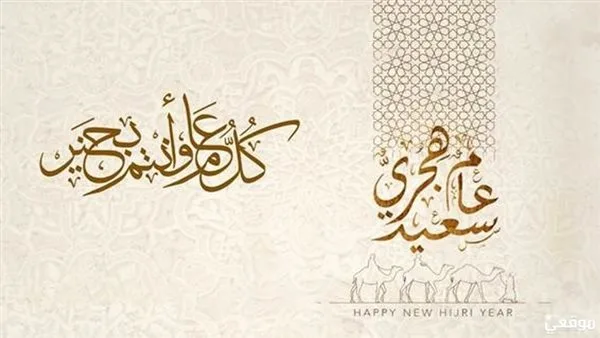 كُلُّ عام وأنتم بخير
عام
هجريّ
سعيد
HAPPY NEW HIJRI YEAR
موقعي